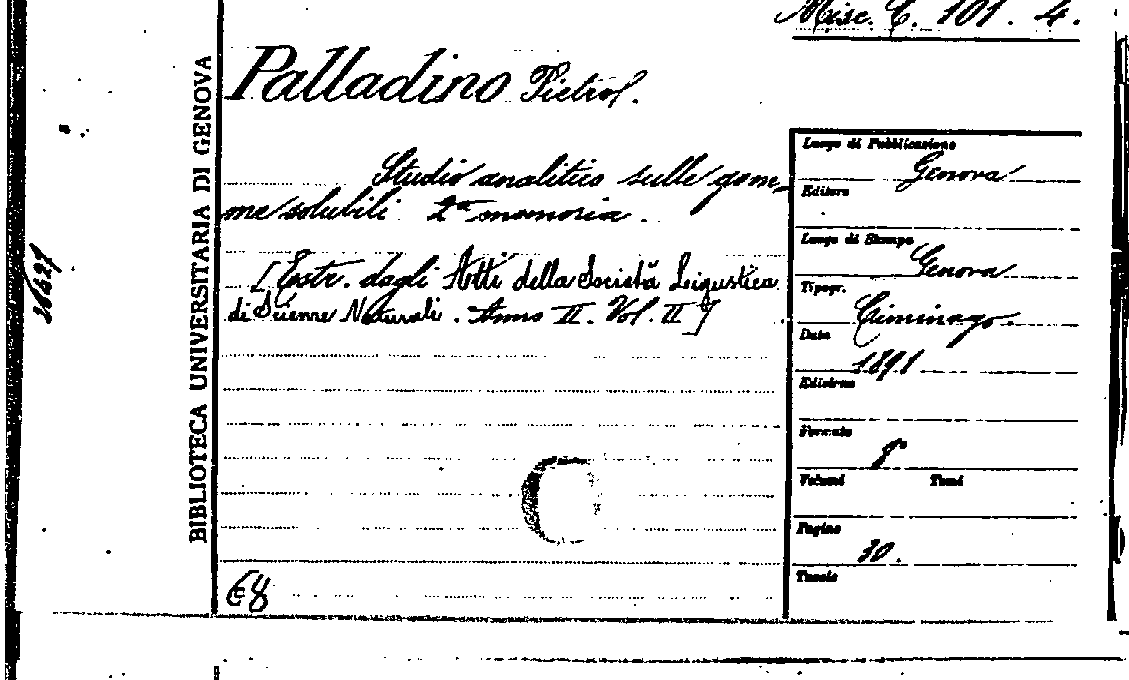 Misc. C. 101. 4.
Palladino Pietro.
Studio analitico sulle gom-
me solubili 2ª memoria.
[Estr. dagli Atti della Società Ligustica
di Scienze Naturali. Anno II. Vol. II]
BIBLIOTECA UNIVERSITARIA DI GENOVA
Luogo di Pubblicazione
Genova
Editore
Luogo di Stampa
Genova
Tipogr.
Ciminago
Data
1891
Edizione
Formato
8°
Volumi Tomi
Pagine
30.
Tavole